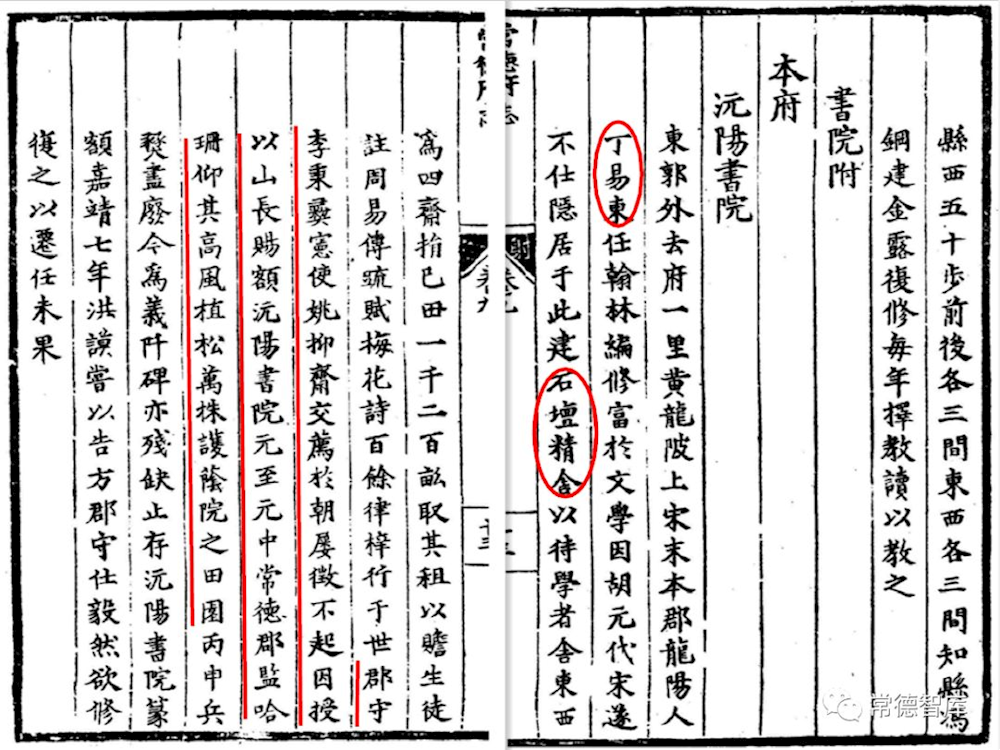 縣西五十步前後各三間東西各三間知縣馮
鋼建金露復修每年擇教讀以教之
書院附
本府
沅陽書院
東郭外去府一里黃龍陂上宋末本郡龍陽人
丁易東任翰林編修富於文學因胡元代宋遂
不仕隱居于此建石壇精舍以待學者舍東西
常德府志
卷九
爲四齋捐已田一千二百畝取其租以贍生徒
註周易傳疏賦梅花詩百餘律梓行于世郡守
李秉彞憲使姚抑齋交薦於朝屢徵不起因授
以山長賜額沅陽書院元至元中常德郡監哈
珊仰其高風植松萬株護蔭院之田園丙申兵
燹盡廢今爲義阡碑亦殘缺止存沅陽書院篆
額嘉靖七年洪謨嘗以告方郡守仕毅然欲修
復之以遷任未果
常德智库